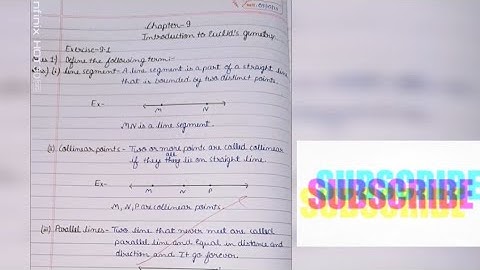 Chapter-9
Introduction to Euclid's geometry
Exercise-9.1
1) Define the following term:-
(i) line segment- A line segment is a part of a straight line
that is bounded by two distinct points.
Ex-
M N
MN is a line segment.
(ii) Collinear points - Two or more points are called collinear
if they all they lie on straight line.
Ex-
M N P
M, N, P are collinear points.
(iii) Parallel lines - Two line that never meet are called
parallel line and Equal in distance and
direction and It go forever.
SUBSCRIBE